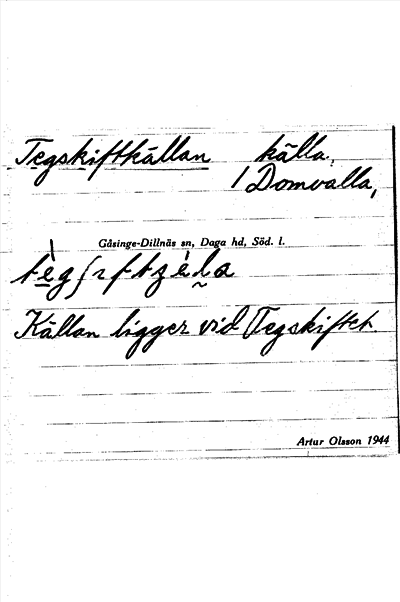 Tegskiftkällan källa,
/ Domvalla,
Gåsinge-Dillnäs sn, Daga hd, Söd. l.
Källan ligger vid Tegskiftet
Artur Olsson 1944